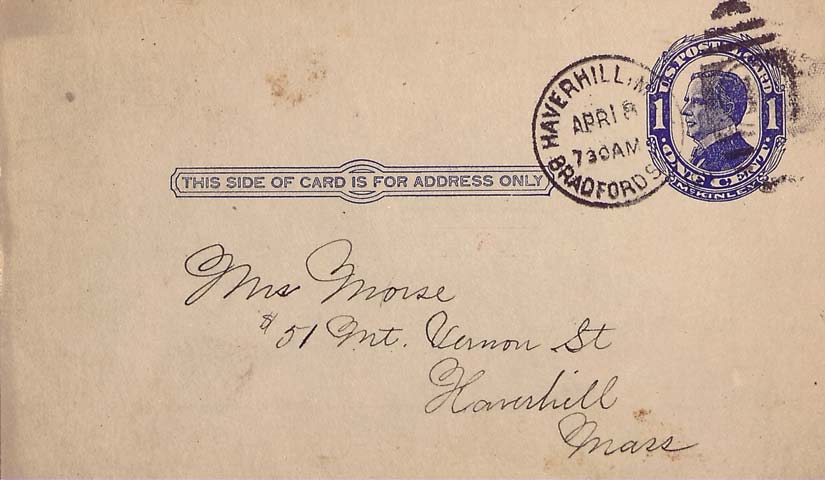 U.S. POSTAL CARD
1 1
ONE CENT
McKINLEY
HAVERHILL, M
APR 18
730AM
BRADFORD S
THIS SIDE OF CARD IS FOR ADDRESS ONLY
Mrs Morse
# 51 Mt. Vernon St
Haverhill
Mass